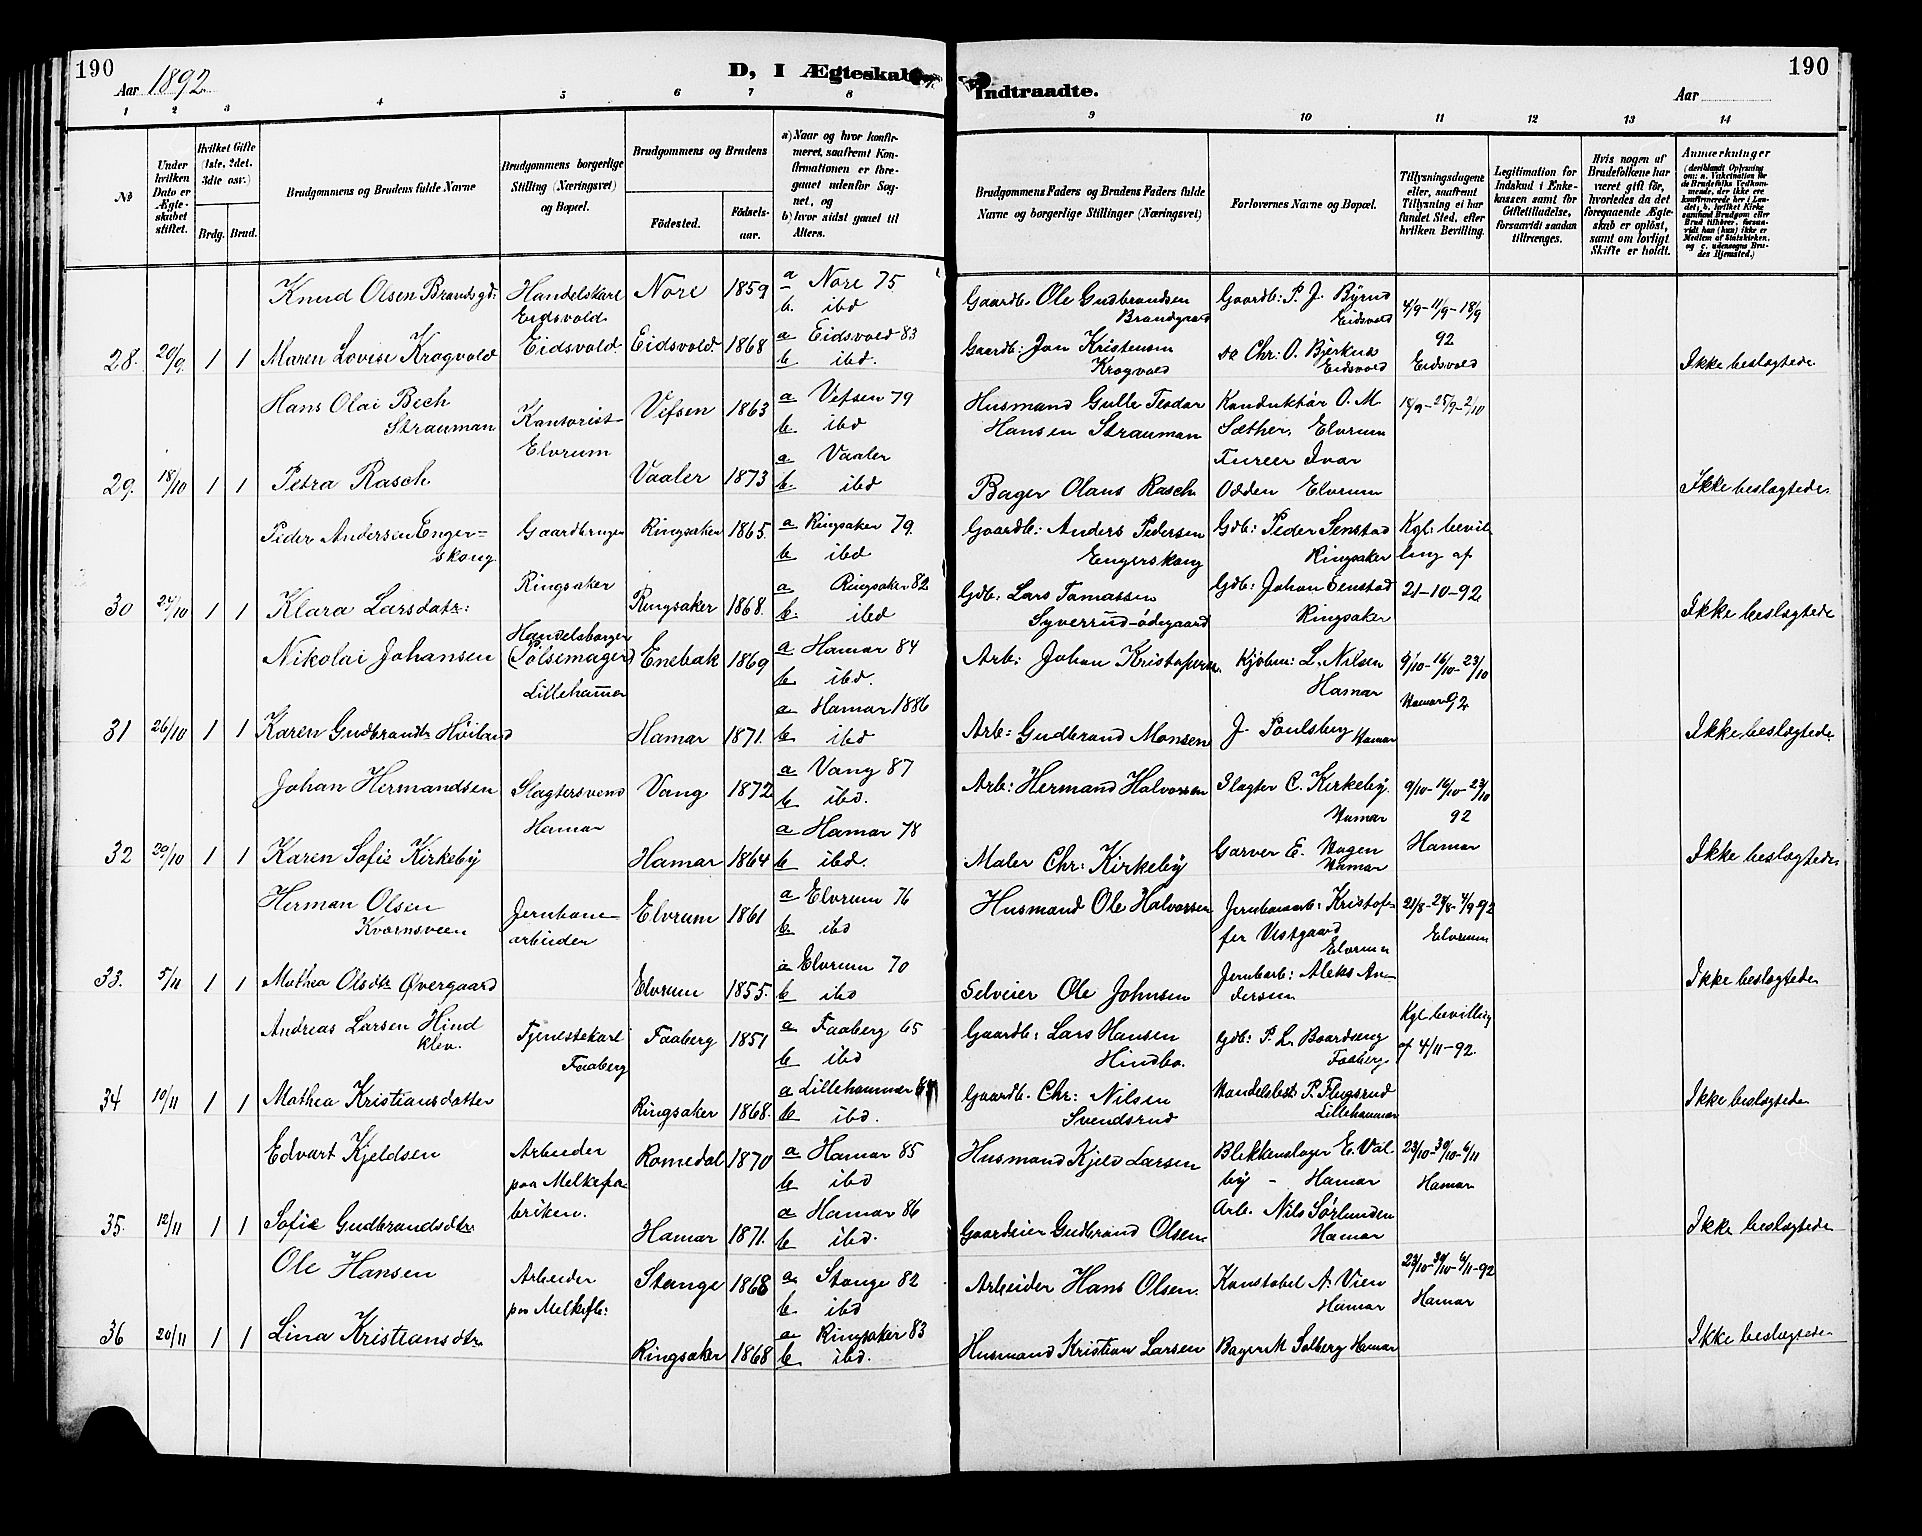 190
Aar 1892.
D, I Ægteskab
Indtraadte.
Aar
190
1 2 3 4 5 6 7 8 9 10 11 12 13 14
№
Under hvilken Dato er Ægteskabet stiftet.
Hvilket Gifte (1ste, 2det. 3die osv.)
Brdg. Brud.
Brudgommens og Brudens fulde Navne
Brudgommens borgerlige Stilling (Næringsvei) og Bopæl.
Brudgommens og Brudens
Fødested.
Fødsels-aar.
a) Naar og hvor konfirmeret, saafremt Konfirmationen er foregaaet udenfor Sognet, og
b) hvor sidst gaaet til Alters.
Brudgommens Faders og Brudens Faders fulde Navne og borgerlige Stillinger (Næringsvei)
Forlovernes Navne og Bopæl.
Tillysningsdagene eller, saafremt Tillysning ei har fundet Sted, efter hvilken Bevilling.
Legitimation for Indskud i Enkekassen samt for Giftetilladelse, forsaavidt saadan tiltrænges.
Hvis nogen af Brudefolkene har været gift før, hvorledes da det foregaaende Ægteskab er opløst, samt om lovligt Skifte er holdt.
Anmærkninger
Knud Olsen Brandsgd:
Handelskarl
Eidsvold
Nore 1859
a Nore 75
b. ibd
Gaardb. Ole Gudbrandsen
Brandgaard
Gaardb: P. J. Byrud
Eidsvold
4/9-11/9-18/9
92
Eidsvold
28. 20/9 1 1 Maren Lovise Krogvold
Eidsvold.
Eidsvold. 1868
a Eidsvold 83
b. ibd.
Gaardb: Jon Kristensen
Krogvold
do Chr: O. Bjerknes
Eidsvold
Ikke beslægtede
Hans Olai Bech
Strauman
Kontorist
Elvrum
Vefsen 1863
a Vefsen 79
b. ibd
Husmand Gulle Teodor
Hansen Strauman
Konduktør O. M.
Sæther, Elvrum
18/9-25/9-2/10
29. 18/10 1 1 Petra Rasch
Vaaler 1873
a Vaaler
b. ibd
Bager Olaus Rasch
Furer Ivar
Odden Elvrum
Ikke beslægtede.
Peder Andersen Enger=
skong
Gaardbruger
Ringsaker
Ringsaker 1865.
a Ringsaker 79.
b ibd
Gaardb: Anders Pedersen
Engerskong
Gdb: Peder Senstad
Ringsaker
Kgl: bevil
ling af
21-10-92
30 24/10 1 1 Klara Larsdatr:
Ringsaker 1868.
a Ringsaker 82
b. ibd
Gdb: Lars Tomassen
Syverrud-ødegaard
Gdb: Johan Senstad
Ringsaker
Ikke beslægtede
Nikolai Johansen
Handelsborger
(Pølsemager)
Lillehamer
Enebak 1869
a Hamar 84
b. ibd.
Arb: Johan Kristofersen
Kjøbm: L. Nilsen
Hamar
9/10-16/10-23/10
Hamar 92
31 26/10 1 1 Karen Gudbrandtr Høilund
Hamar 1871.
a Hamar 1886
b. ibd
Arb: Gudbrand Monsen
J. Poulsberg Hamar
Ikke beslægtede.
Johan Hermandsen
Slagtersvend
Hamar
Vang 1872
a Vang 87
b ibd.
Arb: Hermand Halvorsen
Slagter C. Kirkeby.
Hamar
9/10-16/10-23/10
92
Hamar
32 29/10 1 1 Karen Sofie Kirkeby
Hamar 1864
a Hamar 78
b ibd.
Maler Chr: Kirkeby
Garver E. Hagen
Hamar
Ikke beslægtede
Herman Olsen
Kvernsveen
Jernbane-
arbeider
Elvrum 1861
a Elvrum 76
b. ibd
Husmand Ole Halvorsen
Jernbanearb: Kristof-
fer Vestgaard
Elvrum
21/8-28/8-4/9-92
Elvrum
33. 5/11 1 1 Mathea Olsdtr Øvergaard
Elvrum 1855.
a Elvrum 70
b ibd
Selveier Ole Johnsen
Jernbarb: Aleks An-
dersen
Ikke beslægtede
Andreas Larsen Hind
klev.
Tjenestekarl
Faaberg
Faaberg 1851
a Faaberg 65
b ibd
Gaardb: Lars Hansen
Hindbo.
Gdb: P. L. Baardseng
Faaberg
Kgl bevilling
af 4/11-92.
34 10/11 1 1 Mathea Kristiansdatter
Ringsaker 1868.
a Lillehammer
b. ibd.
Gaardb. Chr: Nilsen
Svendsrud
Handelsbest: P. Flugsrud
Lillehammer
Ikke beslægtede
Edvart Kjeldsen
Arbeider
paa Melkefa-
briken.
Romedal 1870
a Hamar 85
b. ibd
Husmand Kjeld Larsen
Blikkenslager E. Val
by - Hamar
23/10-30/10-6/11
Hamar
35. 12/11 1 1 Sofie Gudbrandsdtr
Hamar 1871.
a Hamar 86
b. ibd.
Gaardeier Gudbrand Olsen
Arb. Nils Sørlunden
Hamar
Ikke beslægtede
Ole Hansen
Arbeider
paa Melkefb:
Stange 1868
a. Stange 82
b. ibd
Arbeider Hans Olsen
Konstabel A. Vien
Hamar
23/10-30/10-6/11-92
Hamar
36 20/11 1 1 Lina Kristiansdtr
Ringsaker 1868
a. Ringsaker 83
b. ibd.
Husmand Kristian Larsen
Bager M Solberg Hamar
Ikke beslægtede